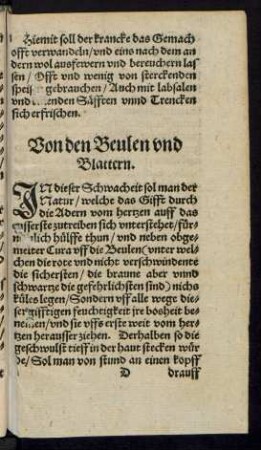 Hiemit soll der krancke das Gemach
offt verwandeln/vnd eins nach dem an
dern wol ausfewern vnd bereuchern las
sen/Offt vnd wenig von sterckenden
speis gebrauchen/Auch mit labsalen
vnd Säfften vnnd Trencken
sich erfrischen.
Von den Beulen vnd
Blattern.
IN dieser Schwacheit sol man der
Natur/welche das Gifft durch
die Adern vom hertzen auff das
eusserste zutreiben sich vnterstehet/für-
lich hülffe thun/vnd neben obge-
melter Cura vff die Beulen(vnter wel-
chen die rote vnd nicht verschwindente
die sichersten/die braune aber vnnd
schwartze die gefehrlichsten sind) nichs
küles legen/Sondern vff alle wege die-
ser gifftigen feuchtigkeit jre bosheit be-
nemen/vnd sie vffs erste weit vom her-
tzen herausser ziehen. Derhalben so die
geschwulst tieff in der haut stecken wür
de/Sol man von stund an einen kopff
D drauff